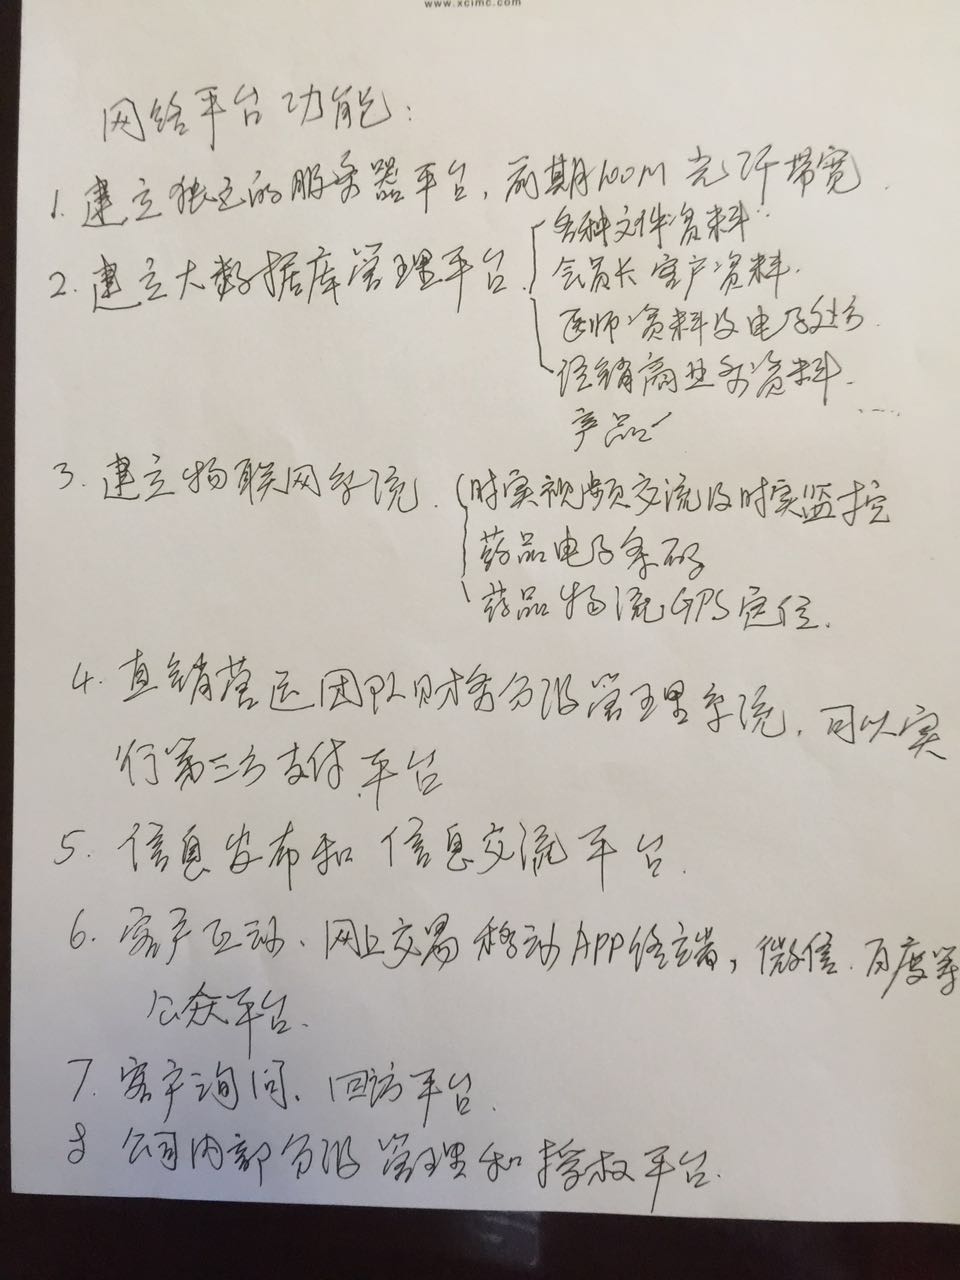 www.xcimc.com
网络平台功能:
1. 建立独立的服务器平台, 前期100M 光纤带宽
2. 建立大数据库管理平台.
各种文件资料
会员长 客户资料.
医师资料及电子处方.
经销商业务资料.
产品
3. 建立物联网系统.
时实视频交流及时实监控
药品电子条码
药品物流GPS定位.
4. 直销营运团队财务分级管理系统, 可以实
行第三方支付平台
5. 信息发布和信息交流平台.
6. 客户互动、网上交易 移动APP终端, 微信.百度等
公众平台.
7. 客户询问、回访平台.
8 公司内部分级管理和授权平台.